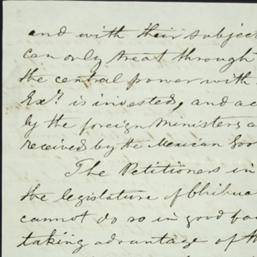 and with their subject
can only treat through
the central power with
Exy. is invested, and ac
by the foreign Ministers a
received by the Mexican Gov
The Petitioners in
the legislature of Chihua
cannot do so in good fa
taking advantage of th